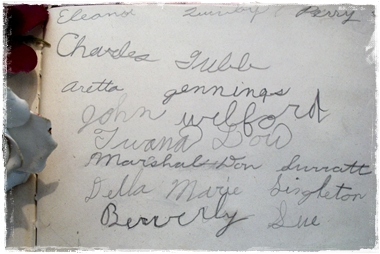 Eleanor Perry
Charles Tubb
Aretta Jennings
John Welford
Twana Dow
Marshal Don Surratt
Della Marie Singleton
Berverly Sue